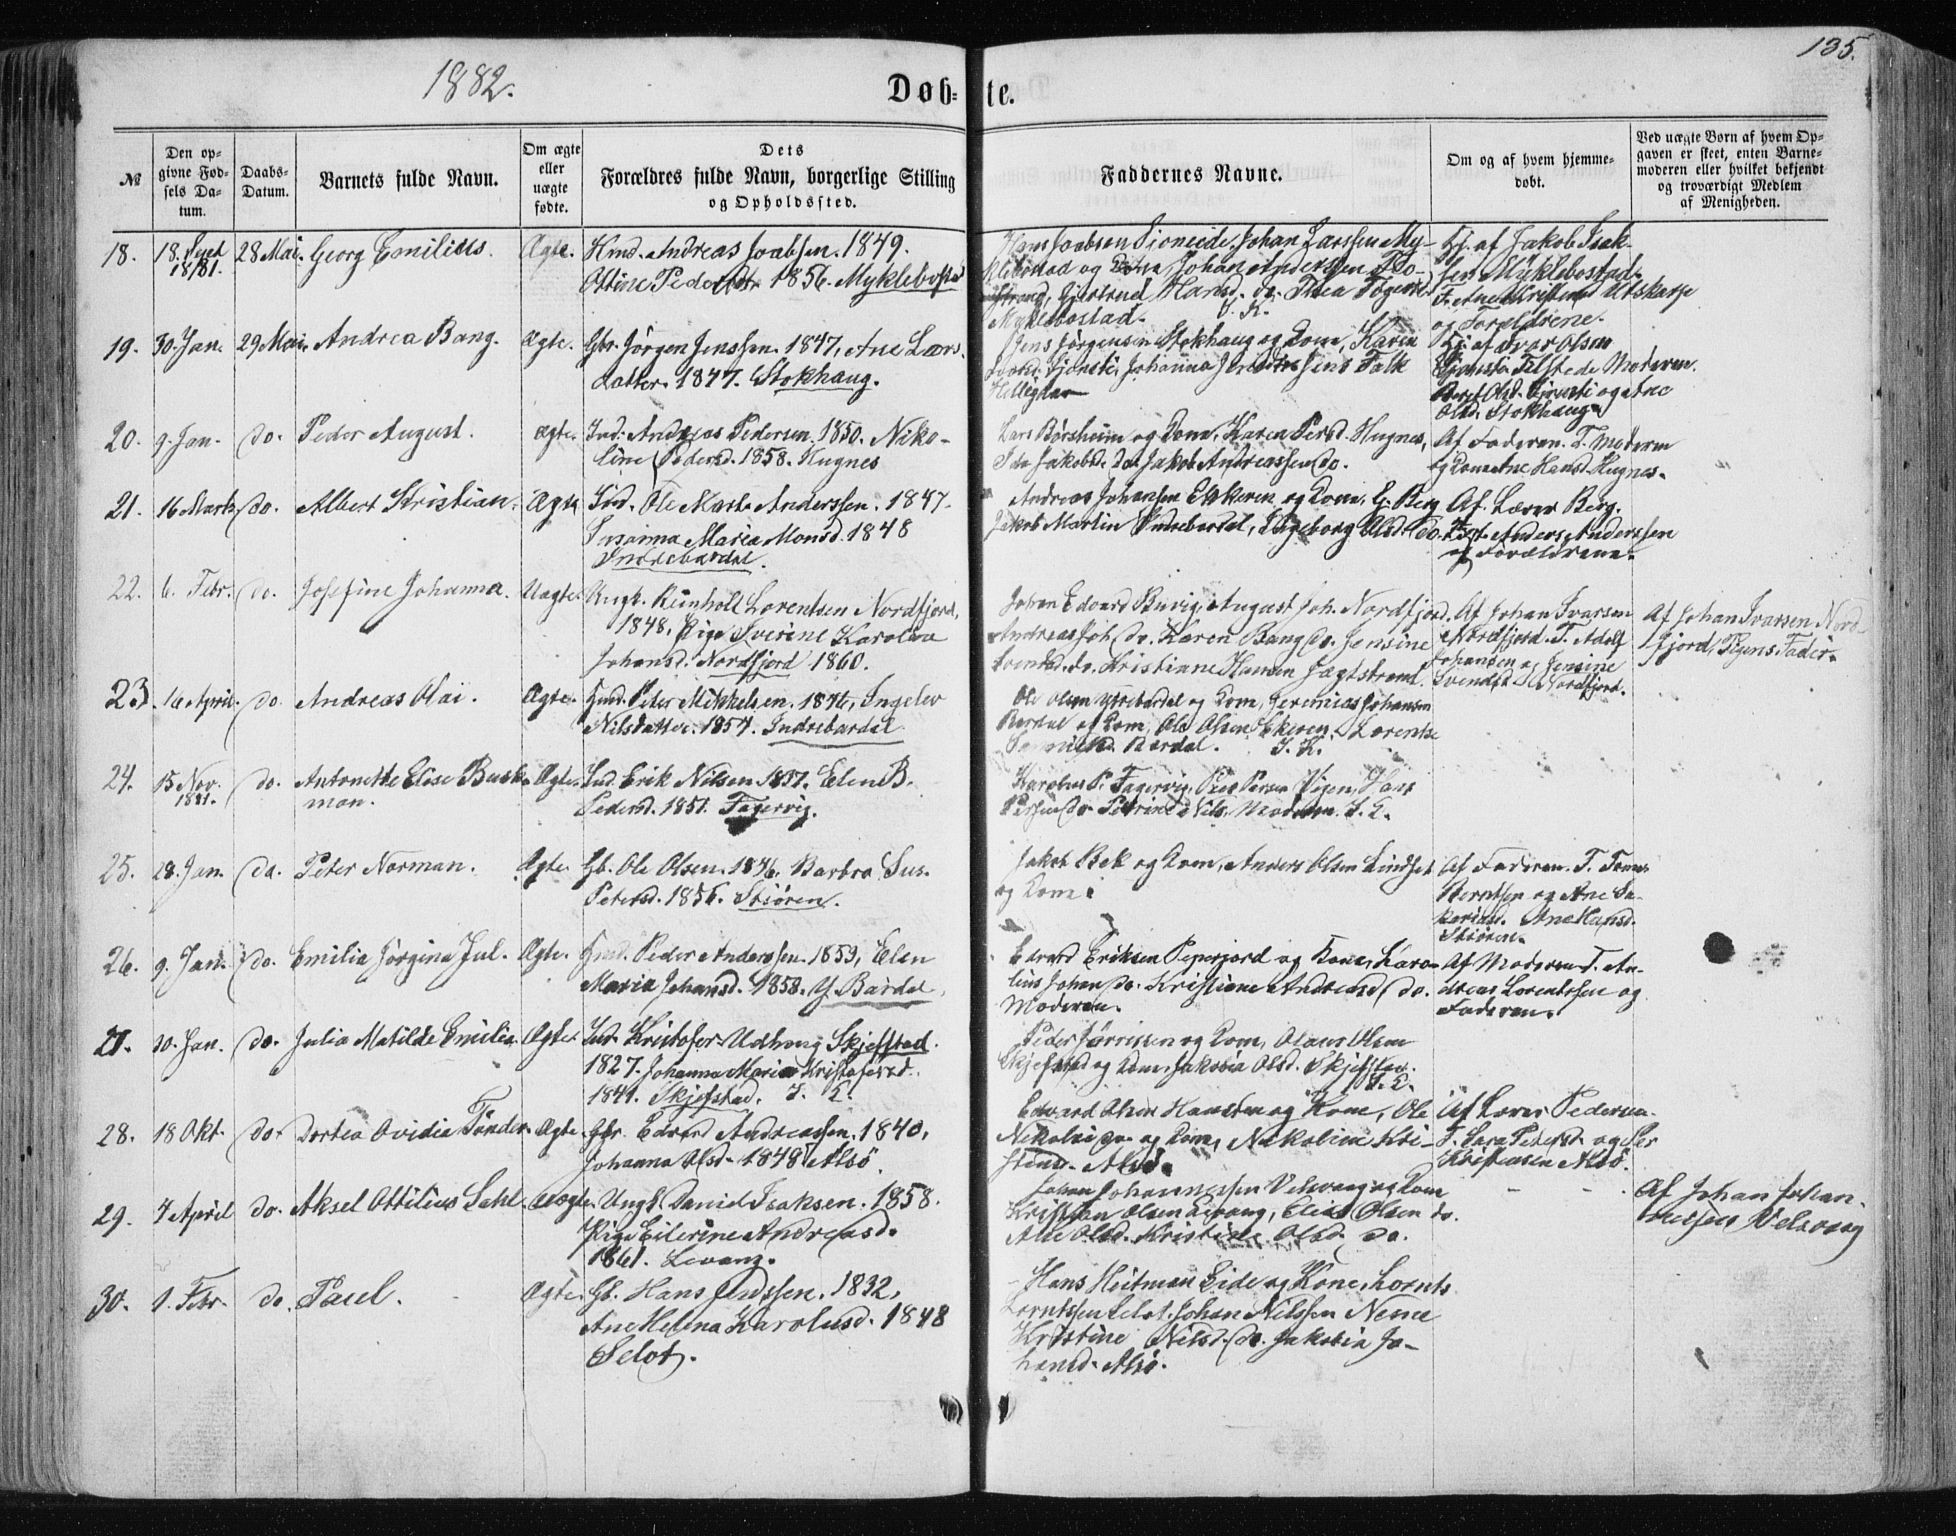 1882.
Døb-
te.
135.
№
Den op-
givne Fød-
sels Da-
tum.
Daabs-
Datum.
Barnets fulde Navn.
Om ægte
eller
uægte
fødte.
Dets
Forældres fulde Navn, borgerlige Stilling
og Opholdssted.
Faddernes Navne.
Om og af hvem hjemme-
døbt.
Ved uægte Børn af hvem Op-
gaven er skeet, enten Barne-
moderen eller hvilket bekjendt
og troværdigt Medlem
af Menigheden.
18.
18. Sept
1881.
28 Mai.
Georg Emilius.
Ægte.
Hmd. Andreas Joabsen. 1849.
Ottine Pedersdtr 1856. Myklebostad
Hans Joabsen Johan Larssen My-
klebostad og Kone, Johan Andersen
Gjertrud Hansd. do. Thea
Myklebostad.
Hj. af Jakob Isak-
sen Myklebostad.
F. Ane Utskarpe
og Forældrene.
19.
30 Jan.
29 Mai.
Andrea Bang.
Ægte.
Gbr. Jørgen Jenssen. 1847, Ane Lars-
datter. 1847. Stokhaug.
Jens Jørgensen Stokhaug og Kone, Karen
Johanna Jens Falk
Hj. af Ivar Olsen
Tilstede Moderen.
Olsd. og Ane
Olsd. Stokhaug.
20.
9. Jan.
do.
Peder August.
Ægte.
Ind. Andreas Pedersen. 1850. Niko-
line Pedersd. 1858. Hugnes
Lars Børsheim og Kone, Karen Persd. Hugnes,
Ida Jakobsd. do. Jakob Andreassen do.
Af Faderen. T. Moderen
og Kone Ane Hansd. Hugnes.
21.
16 Marts
do.
Albert Kristian.
Ægte
Ind. Ole Martin Anderssen. 1847.
Susanna Maria Monsd. 1848
Indrebardal.
Andreas Johansen Ekkeren og Kone, E. Berg
Jakob Martin Indrebardal, Ingeborg Olsd. do.
Af Lærer Berg.
T. Anders Anderssen
og Forældrene.
22.
6. Febr.
do.
Josefine Johanna.
Uægte.
Ungk. Reinholt Lorentsen Nordfjord,
1848, Pige Severine Karoline
Johansd. Nordfjord 1860.
Johan Edvard Buvig, August Joh. Nordfjord,
Andreas Joh. do. Karen Bang do. Jensine
Svendsd. do. Kristiane Hansen Jægtstrand.
Af Johan Ivarsen
Nordfjord. T. Adolf
Johansen og Jensine
Svendsd. Nordfjord.
Af Johan Ivarsen Nord-
fjord, Pigens Fader.
23.
16 April.
do.
Andreas Olai.
Ægte.
Hmd. Peter Mikkelsen. 1846, Ingelev
Nilsdatter. 1857. Indrebardal
Ole Olsen Ytrebardal og Kone, Jeremias Johansen
Bardal og Kone, Ole Olsen Ekeren, Lorentse
Bardal. I. K.
24.
15 Nov.
1881.
do.
Antonette Elise Busk-
man.
Ægte.
Ind. Erik Nilsen 1837. Elen B.
Pedersd. 1851. Fagervig.
Karolus P. Fagervig, Peder Persen Vigen, Hans
Persen do. Petrine Nils. Moderen. I. K.
25.
28. Jan.
do.
Peter Norman.
Ægte.
Gb. Ole Olsen. 1846. Barbro Sus.
Petersd. 1856. Stiøren.
Jakob Bek og Kone, Anders Olsen Lindset
og Kone.
Af Faderen. T. Tomas
Berntsen og Ane Sa-
kariasd. Ane Hansd.
Stiøren.
26.
9. Jan.
do.
Emilia Jørgina Jul.
Ægte.
Hmd. Peder Anderssen. 1853, Elen
Maria Johansd. 1858. Y. Bardal.
Edvard Eriksen Peperjord og Kone, Karo-
lius Johan do. Kristiane Andreasd do.
Moderen.
Af Moderen T. An-
dreas Lorentssen og
Faderen.
27.
10. Jan.
do.
Julia Matilde Emilia.
Ægte.
Ind. Kristofer Udhaug Skjefstad.
1827. Johanna Maria Kristofersd.
1841. Skjefstad. I. K.
Peder og Kone, Olaus Olsen
Skjefstad og Kone, Jakobia Olsd. Skjefstad.
I. K.
28.
18 Okt.
do.
Dortea Ovidia Tønder.
Ægte.
Gbr. Edvard Andreassen. 1840,
Johanna Olsd. 1848 Alsø.
Edvard Olsen og Kone, Ole
Nikolai do. og Kone, Nikoline Kri-
stensd. Alsø.
Af Lærer Pedersen.
T. Sara Pedersd. og Per
Kristensen Alsø.
29.
4 April
do.
Aksel Ottilius Dahl.
Uægte.
Ungk. Daniel Isaksen. 1858.
Pige Eilerine Andreasd.
1861. Levang.
Johan Johannessen Velsvaag og Kone
Kristian Olsen Levang, Elias Olsen do.
Ane Olsd. Kristine Olsd. do.
- -
Af Johan Johan-
nessen Velsvaag
30.
1. Febr.
do.
Paul.
Ægte.
Gb. Hans Jenssen. 1832,
Ane Helena Karolusd. 1848
Selot.
Hans Heitman Eide og Kone, Lornts
Lorntssen Selot, Johan Nilssen Nesne
Kristine Nilsd. do. Jakobia Jo-
hansd. Alsø.